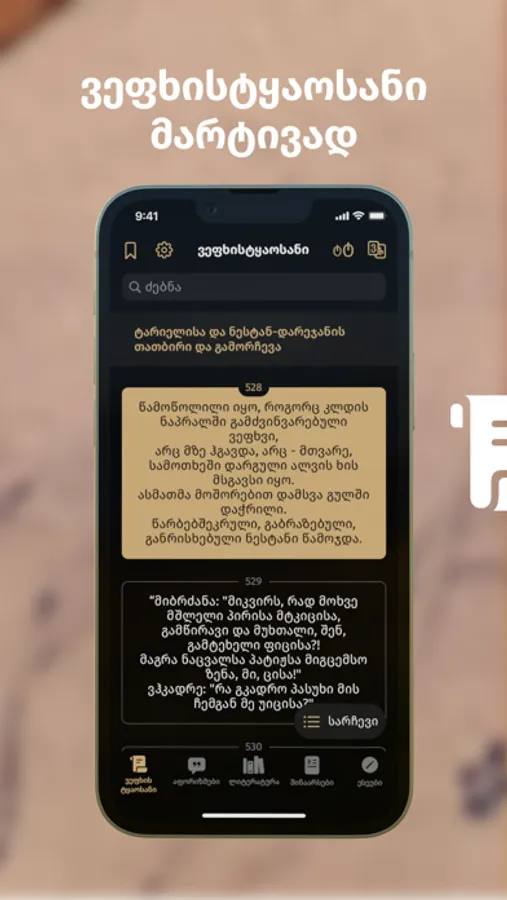 ვეფხისტყაოსანი
მარტივად
9:41
ვეფხისტყაოსანი
ძებნა
ტარიელისა და ნესტან-დარეჯანის
თათბირი და გამორჩევა
528
წამოწოლილი იყო, როგორც კლდის
ნაპრალში გამძვინვარებული
ვეფხვი,
არც მზე ჰგავდა, არც - მთვარე,
სამოთხეში დარგული ალვის ხის
მსგავსი იყო.
ასმათმა მოშორებით დამსვა გულში
დაჭრილი.
წარბებშეკრული, გაბრაზებული,
განრისხებული ნესტანი წამოჯდა.
529
"მიბრძანა: "მიკვირს, რად მოხვე
მშლელი პირისა მტკიცისა,
გამწირავი და მუხთალი, შენ,
გამტეხელი ფიცისა?!
მაგრა ნაცვალსა პატიჟსა მიგცემსო
ზენა, მი, ცისა!"
ვჰკადრე: "რა გკადრო პასუხი მის
ჩემგან მე უიცისა?"
სარჩევი
530
ვეფხის
ტყაოსანი
აფორიზმები
ლიტერატურა
შინაარსები
ესეები